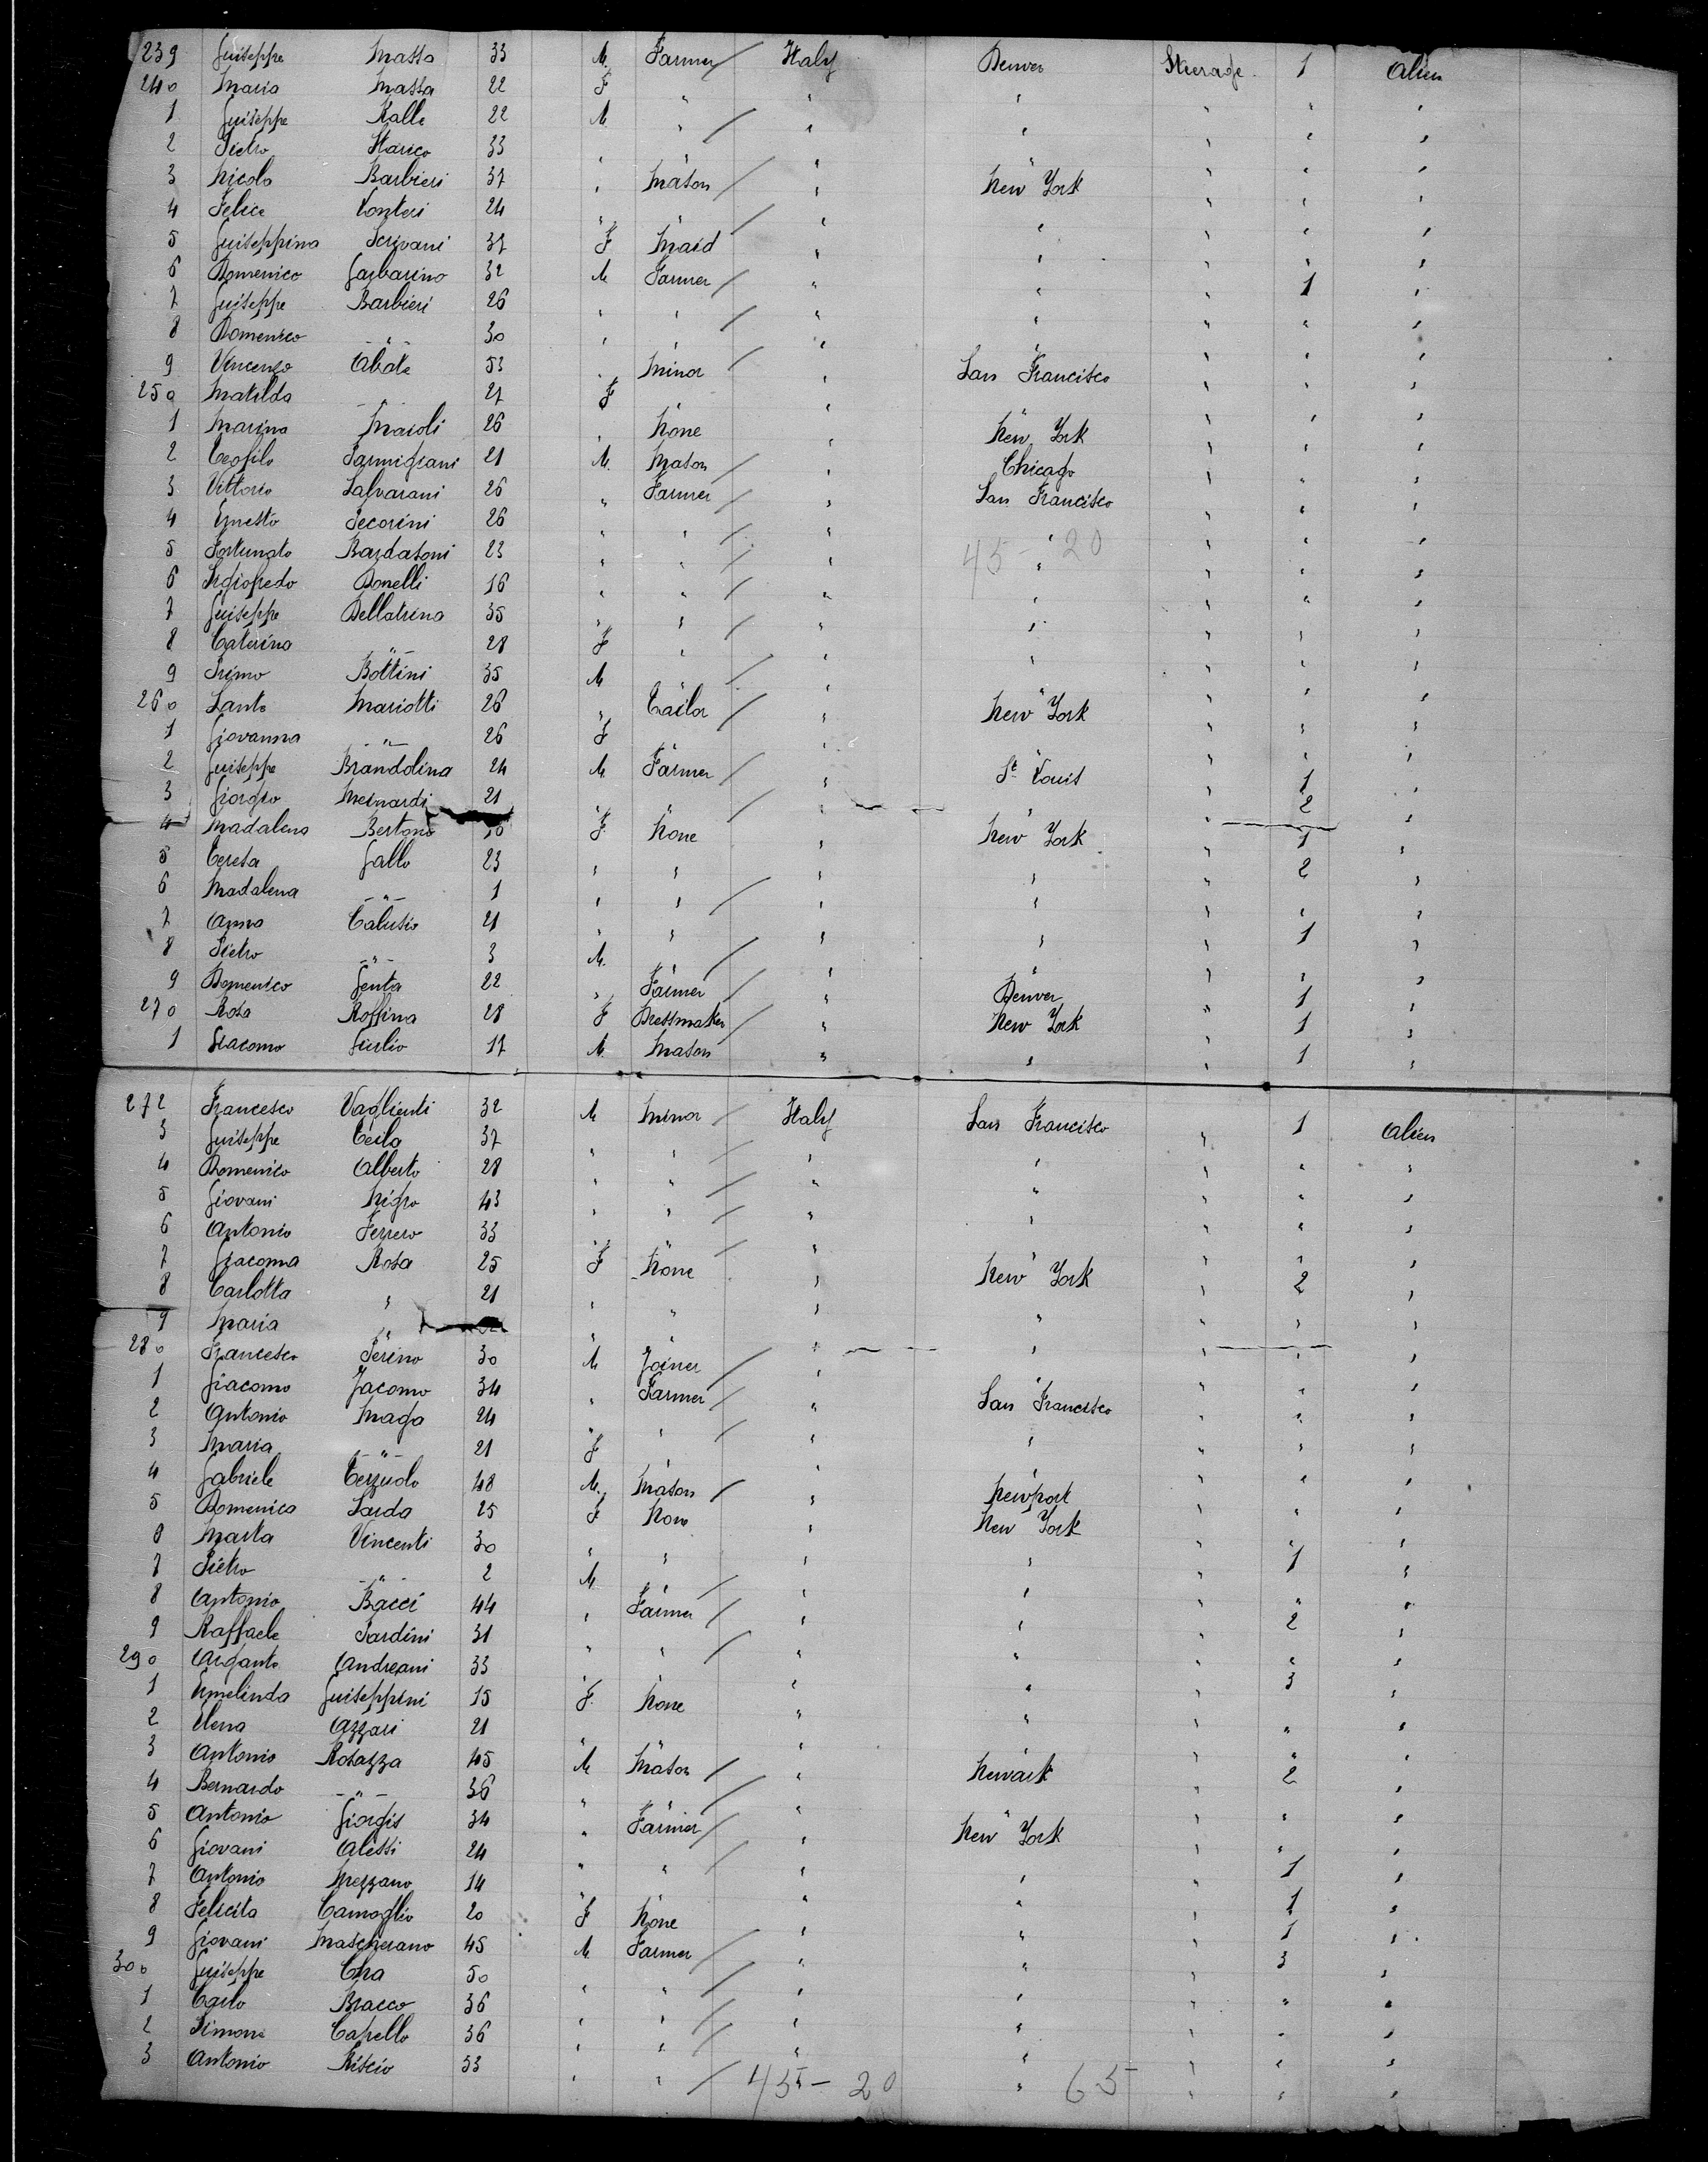 239 Guiseppe Massa 33 M. Farmer / Italy Denver Steerage 1 Alien
240 Maria Massa 22 F " " " " " "
1 Guiseppe Ralle 22 M. " / " " " " "
2 Pietro 33 " " / " " " " "
3 Nicola Barbieri 37 " Mason / " New York " " "
4 Felice 24 " " / " " " " "
5 Guiseppina Scrivani 37 F Maid " " " " "
6 Domenico Garbarino 32 M Farmer / " " " 1 "
7 Guiseppe Barbieri 26 " " / " " " " "
8 Domenico " 30 " " / " " " " "
9 Vincenzo Abate 53 " Minor " San Francisco " " "
250 Matilda " 27 F " " " " "
1 Marina Maroli 26 " None " New York " " "
2 Teofilo Parmigiani 21 M. Mason / " Chicago " " "
3 Vittorio Salvarani 26 " Farmer / " San Francisco " " "
4 Ernesto Pecorini 26 " " / " " " " "
5 Fortunato Bardasoni 23 " " / " " " " "
45 - 20
6 Donelli 16 " " / " " " " "
7 Guiseppe Dellatrina 35 " " / " " " " "
8 Caterina " 28 F " " " " " "
9 Primo Bottini 35 M " / " " " " "
260 Santo Mariotti 26 " Tailor / " New York " " "
1 Giovanna " 26 F " " " " "
2 Guiseppe Brandolina 24 M Farmer / " St Louis " 1 "
3 Giorgio Meinardi 21 " " / " " " 2 "
4 Madalena Bertono F None " New York " 1 "
5 Teresa Gallo 23 " " " " " 2 "
6 Madalena " 1 " " / " " " " "
7 Anna Calusio 21 " " " " " 1 "
8 Pietro " 3 M. " / " " " " "
9 Domenico Genta 22 " Farmer / " Denver " 1 "
270 Rosa Roffina 28 F Dressmaker / " New York " 1 "
1 Giacomo Giulio 17 M. Mason " " " 1 "
272 Francesco Vaglienti 32 M Minor / Italy San Francisco " 1 Alien
3 Guiseppe Ceila 37 " " / " " " " "
4 Domenico Alberto 28 " " / " " " " "
5 Giovani Nigro 43 " " / " " " " "
6 Antonio Ferrero 33 " " / " " " " "
7 Giacoma Rosa 25 F None " New York " 2 "
8 Carlotta " 21 " " " " " " "
9 Maria " " " " " " " "
280 Francesco Perino 30 M Joiner / " " " " "
1 Giacomo Jacomo 34 " Farmer / " San Francisco " " "
2 Antonio Mago 24 " " " " " " "
3 Maria " 21 F " " " " "
4 Gabriele Terzuolo 48 M. Mason / " Newport " " "
5 Domenica Sarda 25 F None " New York " " "
8 Marta Vincenti 30 " " " " " 1 "
7 Pietro " 2 M. " / " " " " "
8 Antonio Bacci 44 " Farmer / " " " 2 "
9 Raffaele Pardini 31 " " / " " " " "
290 Arganto Andreani 33 " " " " " 3 "
1 Ermelinda Guiseppini 15 F. None " " " " "
2 Elena Azzari 21 " " " " " " "
3 Antonio Rosazza 45 M Mason / " Newark " 2 "
4 Bernardo " 36 " " / " " " " "
5 Antonio Giorgis 34 " Farmer / " New York " " "
6 Giovani Alessi 24 " " / " " " 1 "
7 Antonio Mezzano 14 " " " " " 1 "
8 Felicita Camoglio 20 F None " " " 1 "
9 Giovani Mascherano 45 M Farmer / " " " 3 "
300 Guiseppe Cha 50 " " / " " " " "
1 Carlo Bracco 36 " " / " " " " "
2 Simone Capello 36 " " / " " " " "
3 Antonio Riscio 33 " " / " " " " "
45 - 20 65